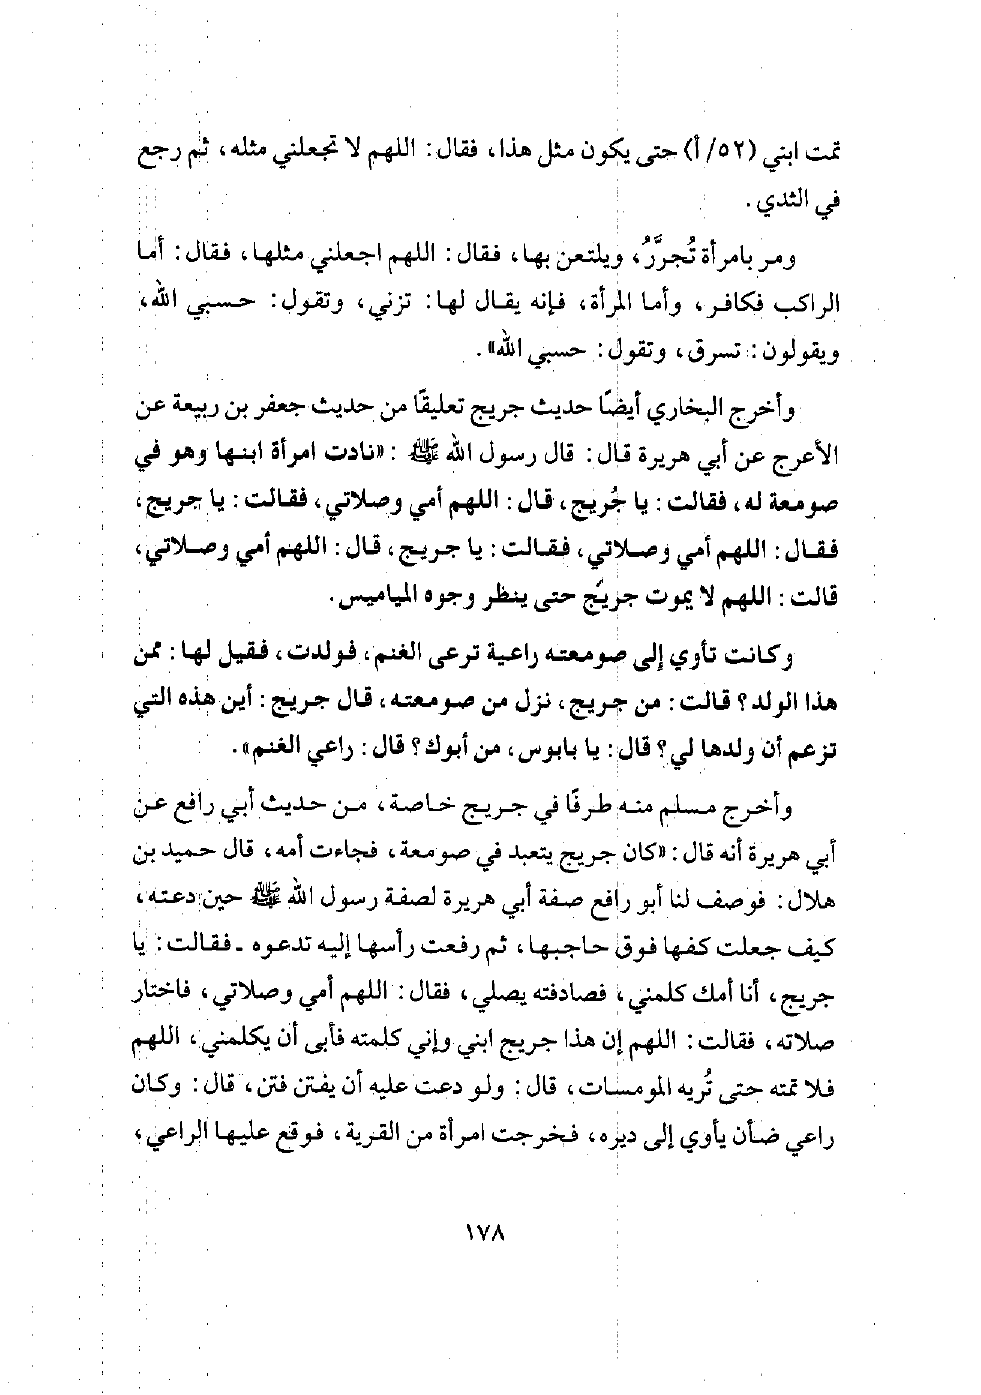 تمت ابني (٥٢/أ) حتى يكون مثل هذا، فقال: اللهم لا تجعلني مثله، ثم رجع
في الثدي.
ومر بامرأة تُجرَّرُ، ويلتعن بها، فقال: اللهم اجعلني مثلها، فقال: أما
الراكب فكافر، وأما المرأة، فإنه يقال لها: تزني، وتقول: حسبي الله،
ويقولون: تسرق، وتقول: حسبي الله».
وأخرج البخاري أيضًا حديث جريج تعليقًا من حديث جعفر بن ربيعة عن
الأعرج عن أبي هريرة قال: قال رسول الله ﷺ: «نادت امرأة ابنها وهو في
صومعة له، فقالت: يا جُريج، قال: اللهم أمي وصلاتي، فقالت: يا جريج،
فقال: اللهم أمي وصلاتي، فقالت: يا جريج، قال: اللهم أمي وصلاتي،
قالت: اللهم لا يموت جريج حتى ينظر وجوه المياميس.
وكانت تأوي إلى صومعته راعية ترعى الغنم، فولدت، فقيل لها: ممن
هذا الولد؟ قالت: من جريج، نزل من صومعته، قال جريج: أين هذه التي
تزعم أن ولدها لي؟ قال: يا بابوس، من أبوك؟ قال: راعي الغنم».
وأخرج مسلم منه طرفًا في جريج خاصة، من حديث أبي رافع عن
أبي هريرة أنه قال: «كان جريج يتعبد في صومعة، فجاءت أمه، قال حميد بن
هلال: فوصف لنا أبو رافع صفة أبي هريرة لصفة رسول الله ﷺ حين دعته،
كيف جعلت كفها فوق حاجبها، ثم رفعت رأسها إليه تدعوه ـ فقالت: يا
جريج، أنا أمك كلمني، فصادفته يصلي، فقال: اللهم أمي وصلاتي، فاختار
صلاته، فقالت: اللهم إن هذا جريج ابني وإني كلمته فأبى أن يكلمني، اللهم
فلا تمته حتى تُريه المومسات، قال: ولو دعت عليه أن يفتن فتن، قال: وكان
راعي ضأن يأوي إلى ديره، فخرجت امرأة من القرية، فوقع عليها الراعي،
١٧٨